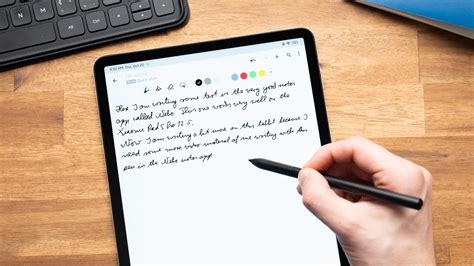 4:52 PM Thu Oct 20
Here I am writing some text in the very good notes
app called Nebo. This one works very well on the
Xiaomi Pad 5 Pro 12.5.
Now I am writing a bit more on this tablet because I
need some more video material of me writing with this
pen in the Nebo notes app